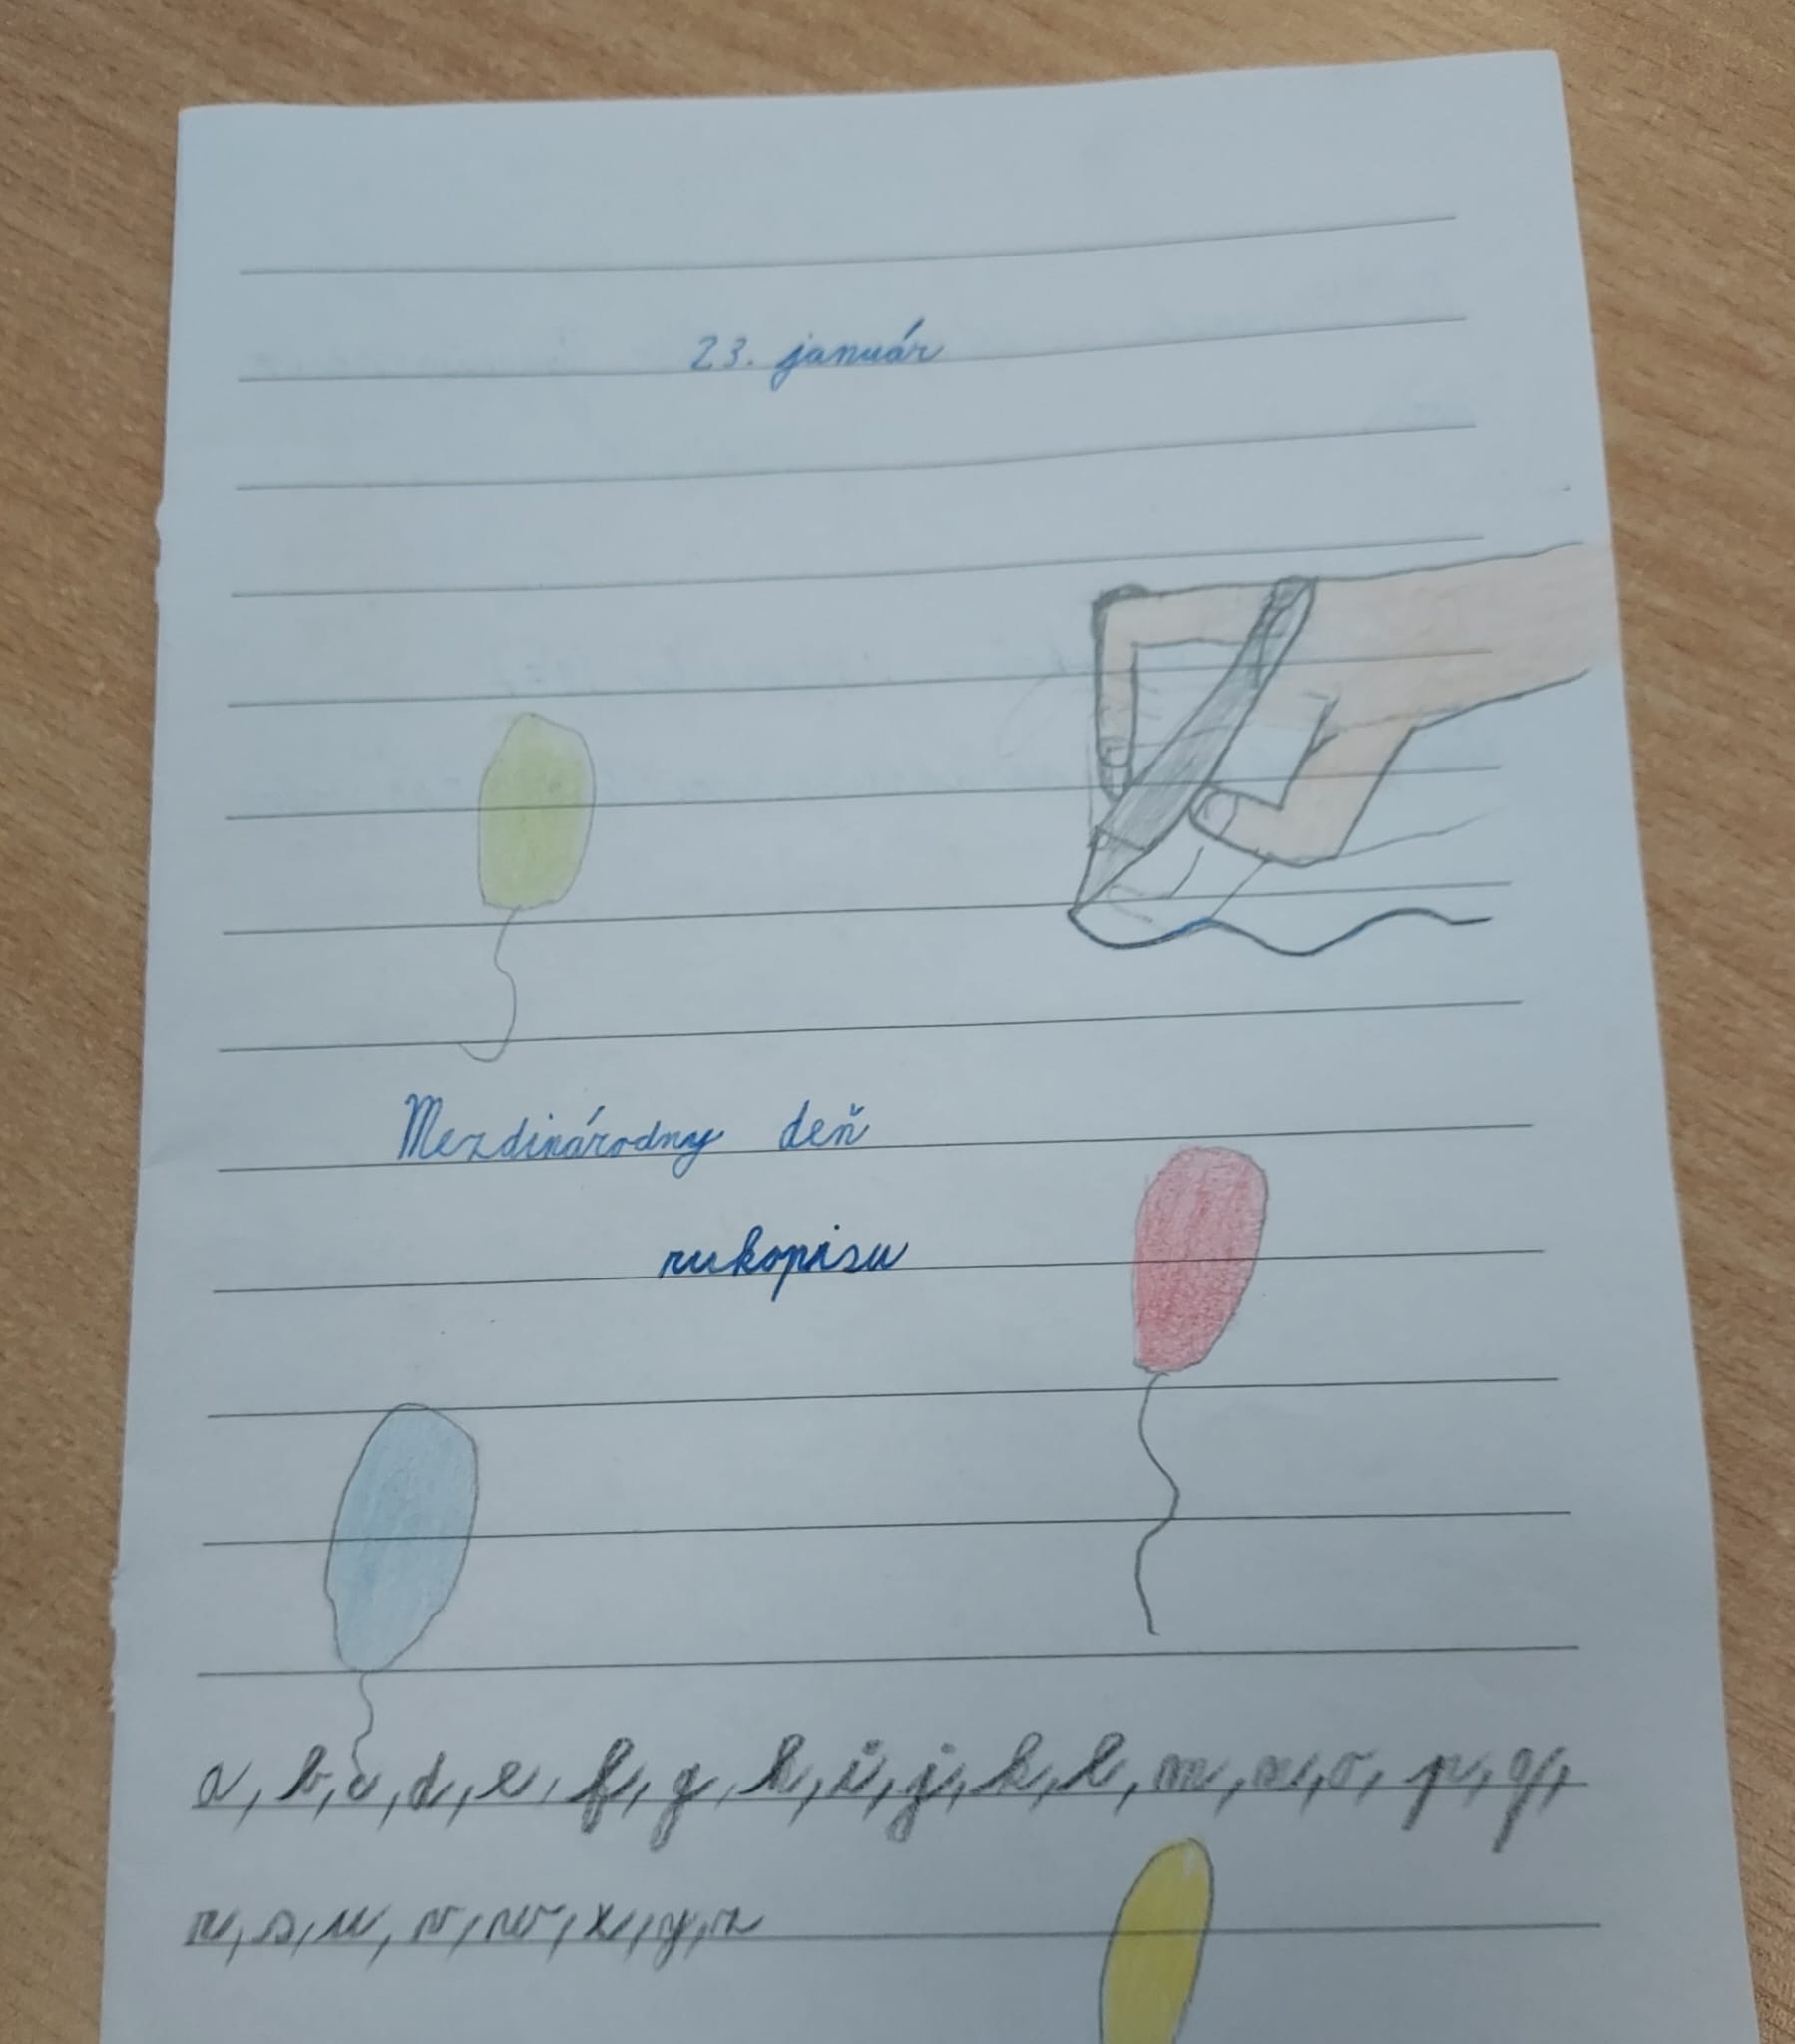 23. január
Mezdinárodny deň
rukopisu
a, b, c, d, e, f, g, h, i, j, k, l, m, n, o, p, q,
r, s, u, v, w, x, y, z